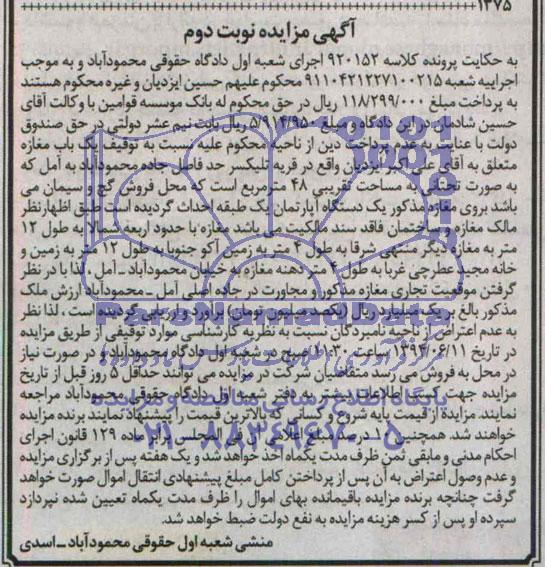 ۱۳۷۵
آگهی مزایده نوبت دوم
به حکایت پرونده کلاسه ۹۲۰۱۵۲ اجرای شعبه اول دادگاه حقوقی محمودآباد و به موجب
اجراییه شعبه ۹۱۱۰۴۲۱۲۲۷۱۰۰۲۱۵ محکوم علیهم حسین ایزدیان و غیره محکوم هستند
به پرداخت مبلغ ۱۱۸/۲۹۹/۰۰۰ ریال در حق محکوم له بانک موسسه قوامین با وکالت آقای
حسین شادمان در این دادگاه و مبلغ ۵/۹۱۴/۹۵۰ ریال بابت نیم عشر دولتی در حق صندوق
دولت با عنایت به عدم پرداخت دین از ناحیه محکوم علیه نسبت به توقیف یک باب مغازه
متعلق به آقای علی اکبر ایزدیان واقع در قریه تلیکسر حد فاصل جاده محمودآباد به آمل که
به صورت تحتانی به مساحت تقریبی ۴۸ مترمربع است که محل فروش گچ و سیمان می
باشد بروی مغازه مذکور یک دستگاه آپارتمان یک طبقه احداث گردیده است طبق اظهارنظر
مالک مغازه و ساختمان فاقد سند مالکیت می باشد مغازه با حدود اربعه شمالا به طول ۱۲
متر به مغازه دیگر منتهی شرقا به طول ۴ متر به زمین آکو جنوبا به طول ۱۲ متر به زمین و
خانه مجید عطرچی غربا به طول ۴ متر دهنه مغازه به خیابان محمودآباد ـ آمل ، لذا با در نظر
گرفتن موقعیت تجاری مغازه مذکور و مجاورت در جاده اصلی آمل ـ محمودآباد ارزش ملک
مذکور بالغ بر یک میلیارد ریال (یکصد میلیون تومان) برآورد و ارزیابی گردیده است ، لذا نظر
به عدم اعتراض از ناحیه نامبردگان نسبت به نظریه کارشناسی موارد توقیفی از طریق مزایده
در تاریخ ۱۳۹۳/۰۶/۱۱ ساعت ۱۱:۳۰ صبح در شعبه اول دادگاه محمودآباد و در صورت نیاز
در محل به فروش می رسد متقاضیان شرکت در مزایده می توانند حداقل ۵ روز قبل از تاریخ
مزایده جهت کسب اطلاعات بیشتر به دفتر شعبه اول دادگاه حقوقی محمودآباد مراجعه
نمایند. مزایده از قیمت پایه شروع و کسانی که بالاترین قیمت را پیشنهاد نمایند برنده مزایده
خواهند شد. همچنین ۱۰ درصد مبلغ اعلامی فی المجلس برابر ماده ۱۲۹ قانون اجرای
احکام مدنی و مابقی ثمن ظرف مدت یکماه اخذ خواهد شد و یک هفته پس از برگزاری مزایده
و عدم وصول اعتراض به آن پس از پرداختن کامل مبلغ پیشنهادی انتقال اموال صورت خواهد
گرفت چنانچه برنده مزایده باقیمانده بهای اموال را ظرف مدت یکماه تعیین شده نپردازد
سپرده او پس از کسر هزینه مزایده به نفع دولت ضبط خواهد شد.
منشی شعبه اول حقوقی محمودآباد ـ اسدی
ParsNamadData
پایگاه اطلاع رسانی مناقصه و مزایده
۰۲۱-۸۸۳۴۹۶۷۰-۵